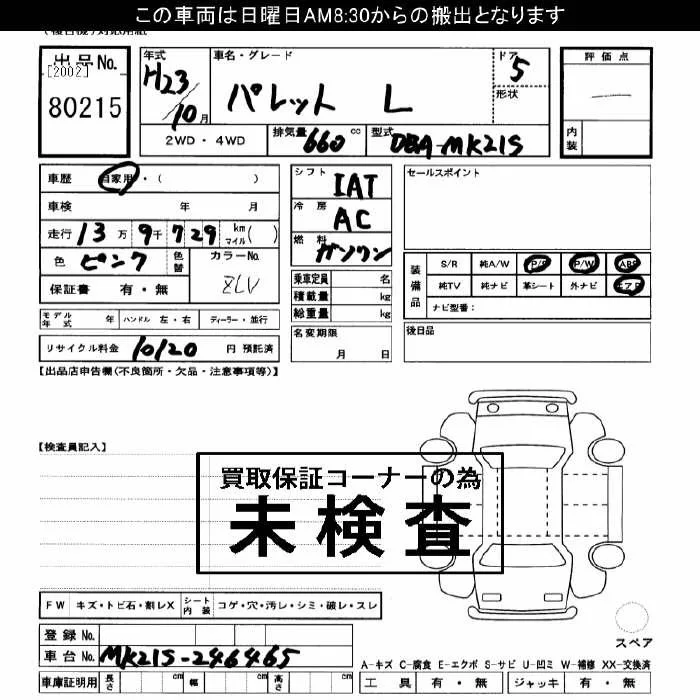 この車両は日曜日AM8:30からの搬出となります
出品No.
[2002]
80215
年式 H23/10月
車名・グレード パレット L
ドア 5
形状
評価点 —
内装
2WD・4WD
排気量 660 cc
型式 DBA-MK21S
車歴 自家用・( )
車検 年 月
走行 13万9千729 km マイル( )
色 ピンク 色替
カラーNo. ZLV
保証書 有・無
シフト IAT
冷房 AC
燃料 ガソリン
乗車定員 名
積載量 kg
総重量 kg
セールスポイント
装備品
S/R 純A/W P/S P/W ABS
純TV 純ナビ 革シート 外ナビ エアB
ナビ型番：
モデル年式 年 ハンドル 左・右 ディーラー・並行
名変期限 月 日
後日品
リサイクル料金 10120 円 預託済
【出品店申告欄(不良箇所・欠品・注意事項等)】
【検査員記入】
買取保証コーナーの為
未検査
FW キズ・トビ石・割レX シート内装 コゲ・穴・汚レ・シミ・破レ・スレ
スペア
登録No.
車台No. MK21S-246465
A-キズ C-腐食 E-エクボ S-サビ U-凹ミ W-補修 XX-交換済
車庫証明用 長さ cm 幅 cm 高さ cm 工具 有・無 ジャッキ 有・無